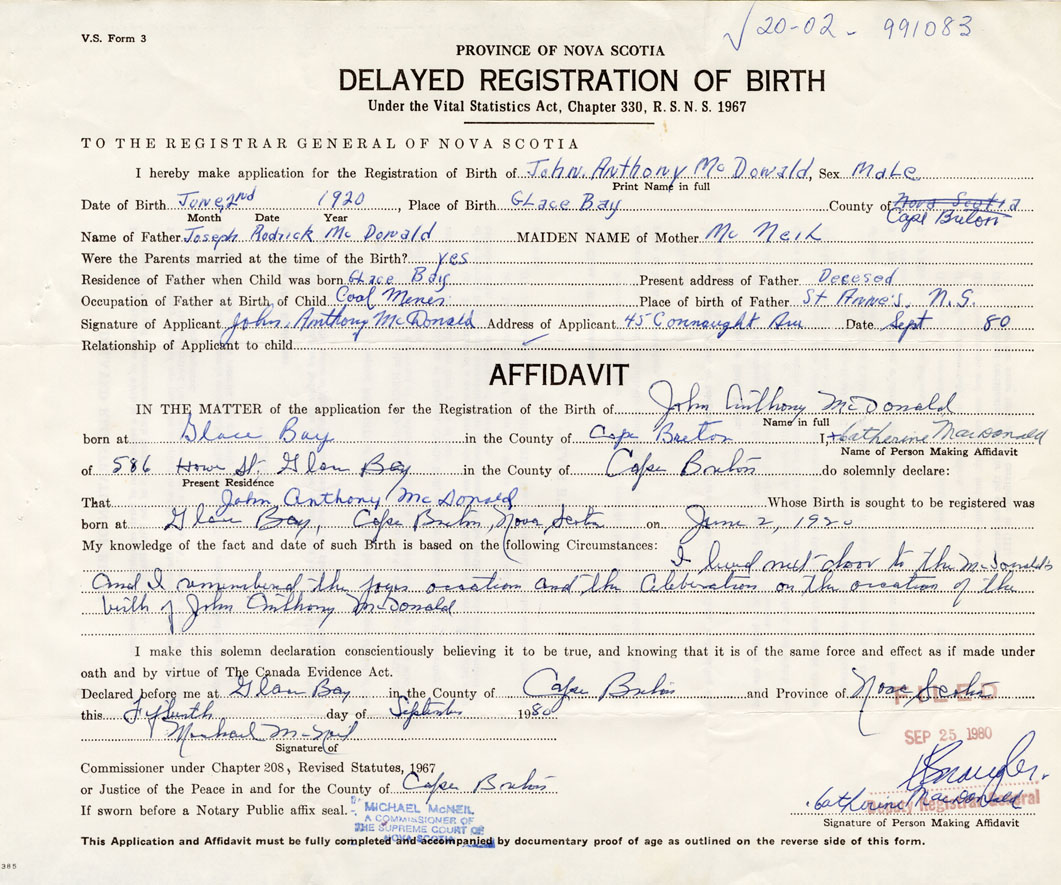 V.S. Form 3
√20-02 - 991083
PROVINCE OF NOVA SCOTIA
DELAYED REGISTRATION OF BIRTH
Under the Vital Statistics Act, Chapter 330, R.S.N.S. 1967
TO THE REGISTRAR GENERAL OF NOVA SCOTIA
I hereby make application for the Registration of Birth of John Anthony McDonald, Sex Male
Print Name in full
Date of Birth June 2nd 1920, Place of Birth Glace Bay County of Nova Scotia
Month Date Year Cape Breton
Name of Father Joseph Rodrick McDonald MAIDEN NAME of Mother McNeil
Were the Parents married at the time of the Birth? yes
Residence of Father when Child was born Glace Bay Present address of Father Decesed
Occupation of Father at Birth of Child Coal Mener Place of birth of Father St Anne's, N.S.
Signature of Applicant John Anthony McDonald Address of Applicant 45 Connaught Ave Date Sept 80
Relationship of Applicant to child
AFFIDAVIT
IN THE MATTER of the application for the Registration of the Birth of John Anthony McDonald
Name in full
born at Glace Bay in the County of Cape Breton I Catherine MacDonald
Name of Person Making Affidavit
of 586 Howe St. Glace Bay in the County of Cape Breton do solemnly declare:
Present Residence
That John Anthony McDonald Whose Birth is sought to be registered was
born at Glace Bay, Cape Breton, Nova Scotia on June 2, 1920
My knowledge of the fact and date of such Birth is based on the following Circumstances:
I lived next door to the McDonalds
and I remembered the joyes occation and the celebration on the occation of the
birth of John Anthony McDonald
I make this solemn declaration conscientiously believing it to be true, and knowing that it is of the same force and effect as if made under
oath and by virtue of The Canada Evidence Act.
Declared before me at Glace Bay in the County of Cape Breton and Province of Nova Scotia
FILED
this day of September 1980
SEP 25 1980
Michael McNeil
Signature of
Commissioner under Chapter 208, Revised Statutes, 1967
or Justice of the Peace in and for the County of Cape Breton
If sworn before a Notary Public affix seal.
MICHAEL McNEIL
A COMMISSIONER OF
THE SUPREME COURT OF
NOVA SCOTIA
Catherine MacDonald
Deputy Registrar General
Signature of Person Making Affidavit
This Application and Affidavit must be fully completed and accompanied by documentary proof of age as outlined on the reverse side of this form.
385